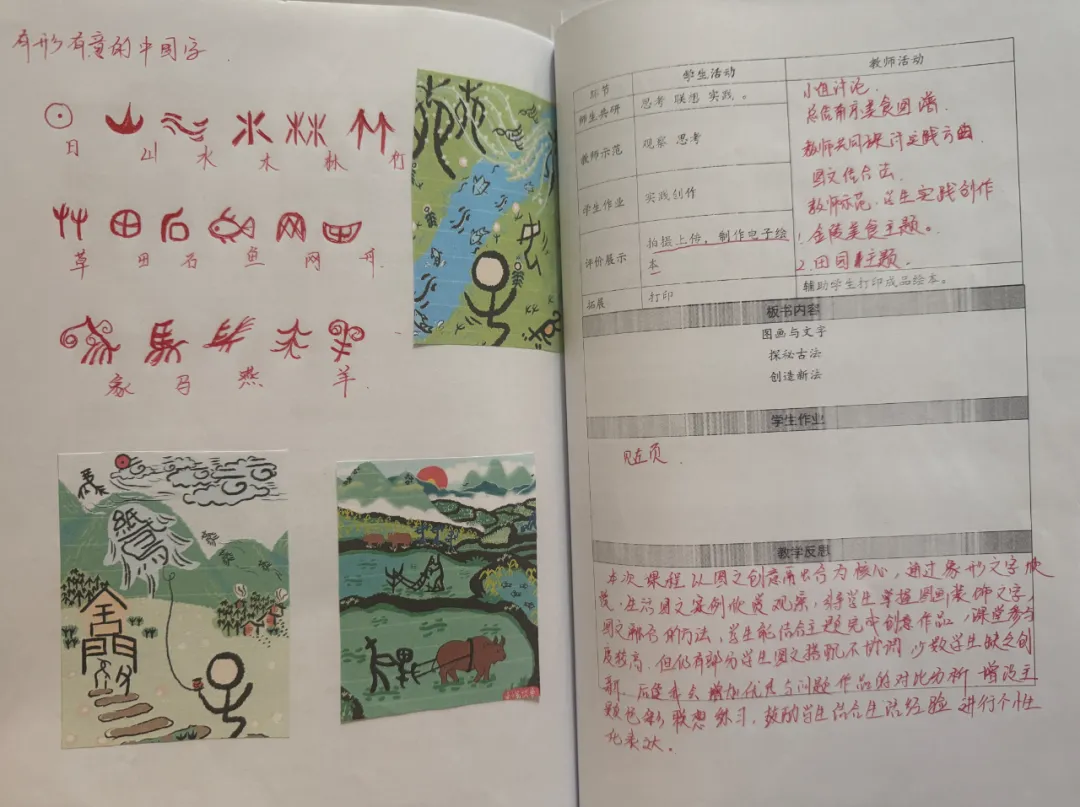 有形有意的中国字
日 山 水 木 林 竹
草 田 石 鱼 网 舟
象 马 燕 羊
紙鳶
环节 学生活动 教师活动
师生共研 思考 联想 实践。
小组讨论.
总结南京美食图谱
教师示范 观察 思考
教师共同探讨实践方曲.
图文结合法.
学生作业 实践创作
教师示范.学生实践创作
评价展示 拍摄上传,制作电子绘本
1.金陵美食主题。
2.田园主题.
拓展 打印 辅助学生打印成品绘本。
板书内容
图画与文字
探秘古法
创造新法
学生作业
见左页.
教学反思
本次课程以图文创意融合为核心,通过象形文字
生活图文案例欣赏观察,学生掌握图画装饰文字,
图文融合的方法,学生能结合主题完成创意作品,课堂参与
度较高.但仍有部分学生图文搭配不协调,少数学生缺乏创
新.后续来会增加优秀与问题作品的对比分析.增设主
题色彩联想练习,鼓励学生结合生活经验进行个性
化表达。